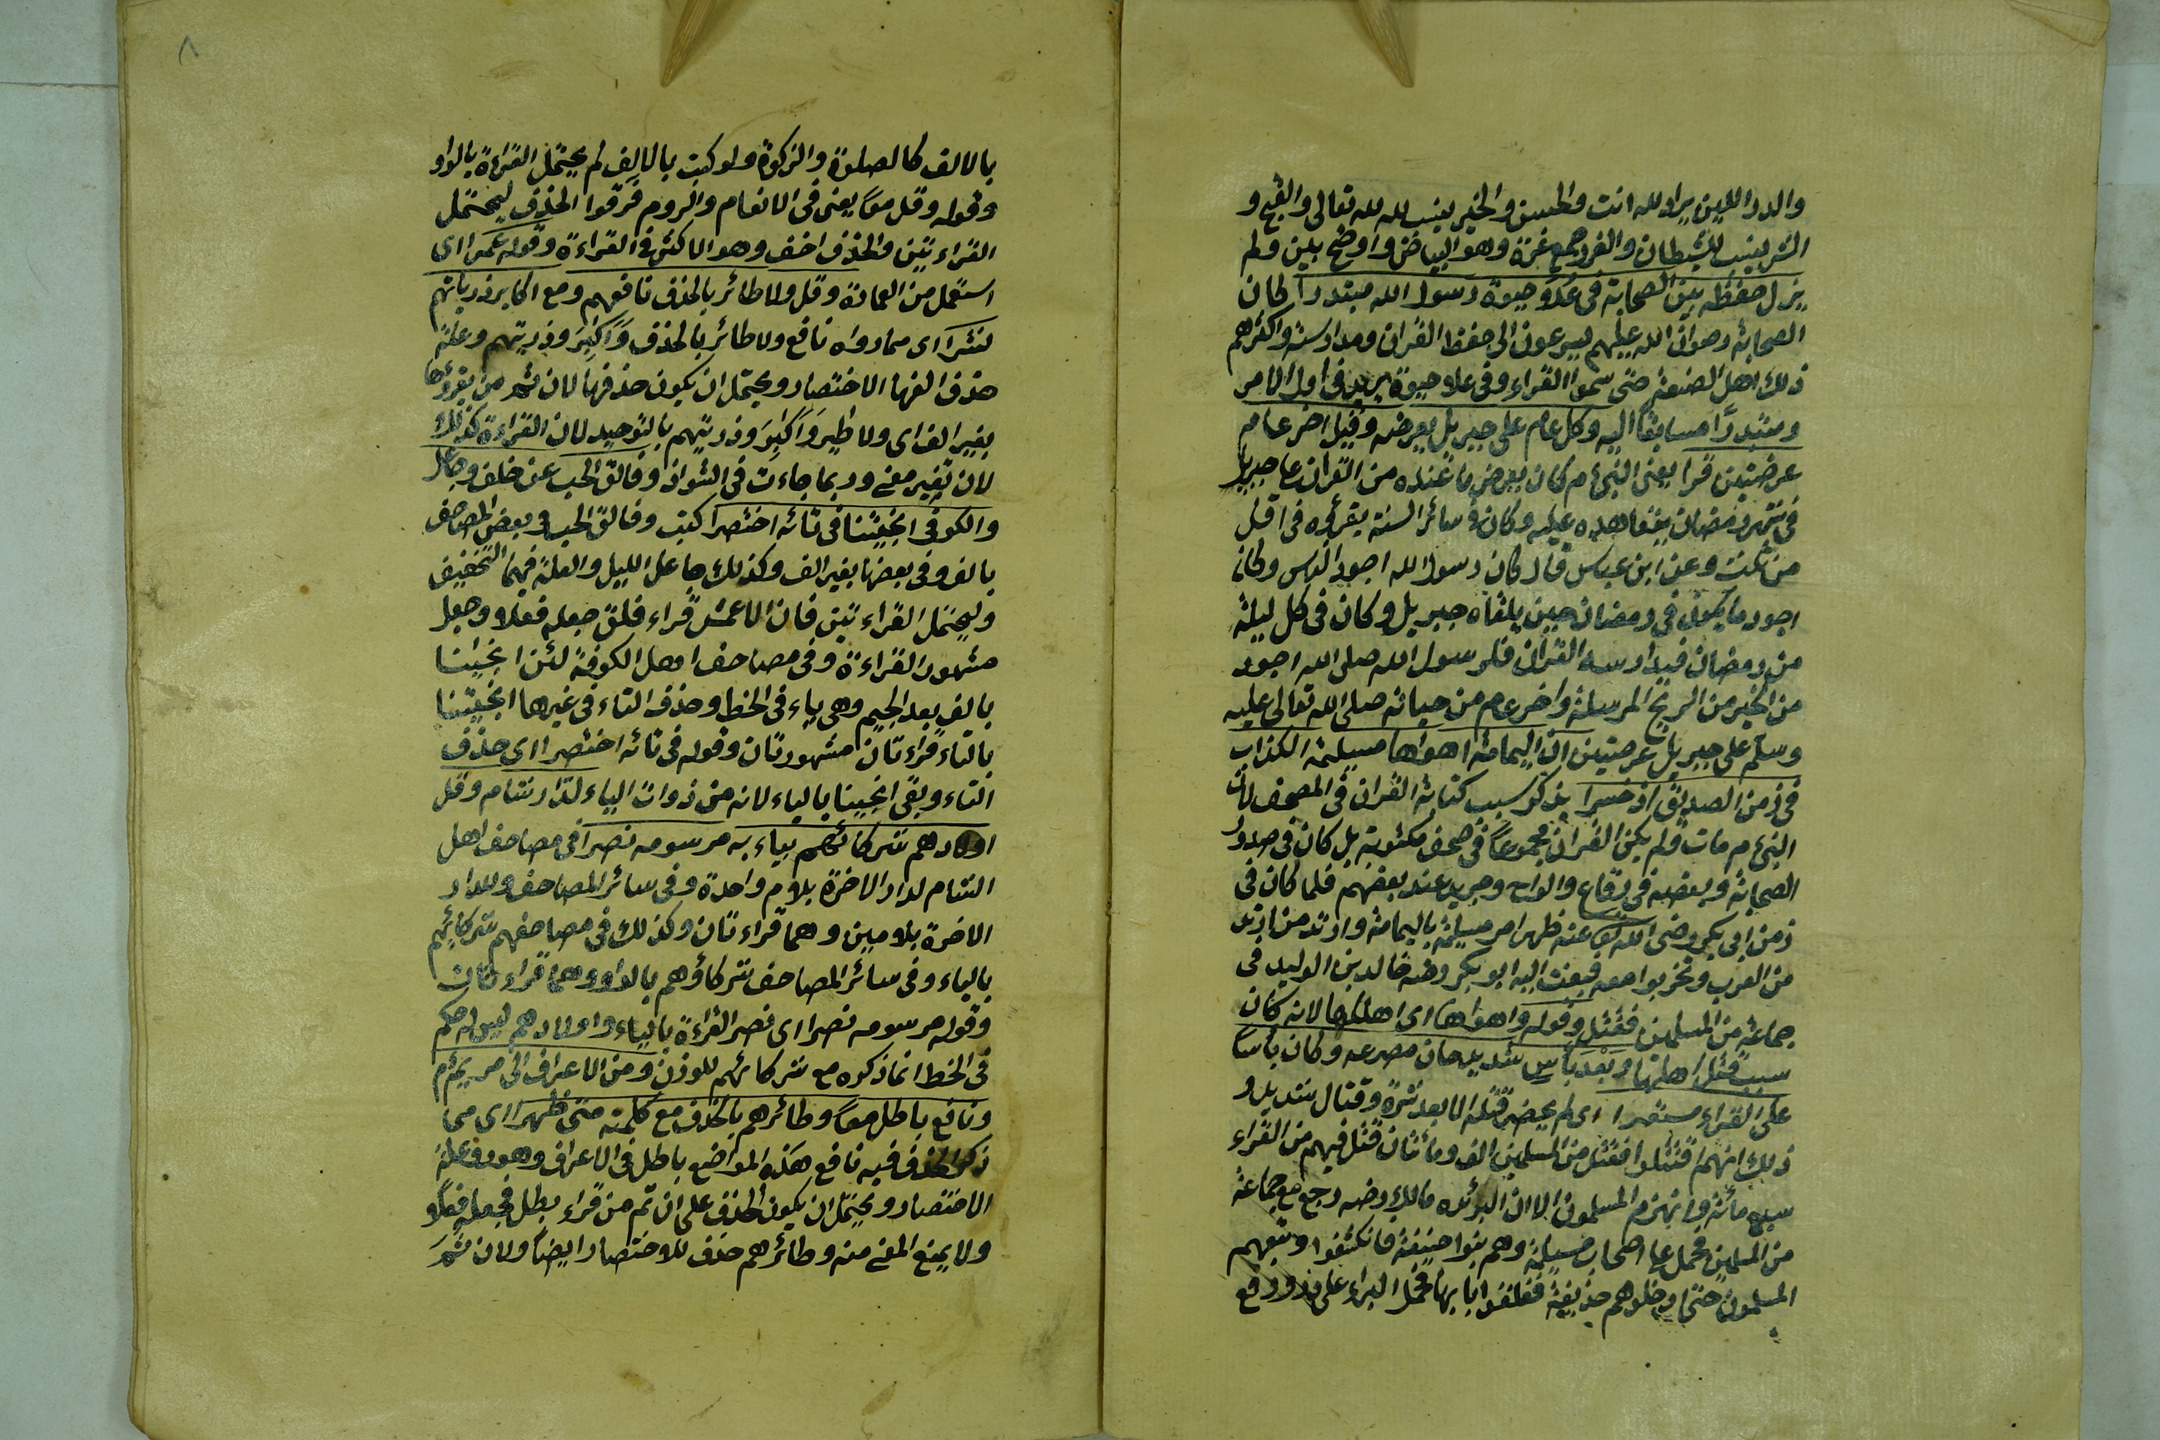 والدر اللين يراد لله انت والحسن والخير ينسب لله لله تعالى والقبح و
الشر ينسب للشيطان والغر جمع غرة وهو البياض واوضح بلين ولم
يزل حفظه بين الصحابة في علا حيوة رسول الله مبتدرا لان
الصحابة رضوان الله عليهم يسرعون الى حفظ القران ومدارسته واكثرهم
ذلك اهل الصفة حتى سموا القراء وفي علا حيوة يريد في اول الامر
ومبتدرا مسابقا اليه وكل عام على جبريل يعرضه وقيل اخر عام
عرضتين قرا يعنى النبي م كان يعرض ما عنده من القران على جبريل
في شهر رمضان يتعاهده عليه وكان في سائر السنة يقرئه في اقل
من ثلث وعن ابن عباس قال كان رسول الله اجود الناس وكان
اجود ما يكون في رمضان حين يلقاه جبريل وكان في كل ليلة
من رمضان فيدارسه القران فلرسول الله صلى الله اجود
من الخير من الريح المرسلة واخر عام من حياته صلى الله تعالى عليه
وسلم على جبريل عرضتين ان اليمامة اهواها مسيلمة الكذاب
في زمن الصديق اذ خسرا يذكر سبب كتابة القران في المصحف لان
النبي م مات ولم يكن القران مجموعا في صحف مكتوبة بل كان في صدور
الصحابة وبعضه في رقاع والواح وجريد عند بعضهم فلما كان في
زمن ابى بكر رضى الله عنه ظهر امر مسيلمة باليمامة وارتد من ارتد
من العرب وتحزبوا معه فبعث اليه ابو بكر رضه خالد بن الوليد في
جماعة من المسلمين فقتل وقوله واهواها اى اهلكها لانه كان
سبب قتل اهلها وبعد باس شديد حان مصرعه وكان باسا
على القراء مستعرا اى لم يحضر قتله الا بعد شرة وقتال شديد و
ذلك انهم اقتتلوا فقتل من المسلمين الف ومائتان قتل فيهم من القراء
سبع مائة وانهزم المسلمون الا ان البراء بن مالك رضه رجع مع جماعة
من المسلمين فحمل على اصحاب مسيلمة وهم بنوا حنيفة فانكشفوا وتبعهم
المسلمون حتى ادخلوهم حذيقة فغلقوا بابها فحمل البراء على ووقع
٨
بالالف كالصلوة والزكوة ولو كتبت بالالف لم يحتمل القراءة بالواو
وقوله وقل معا يعنى في الانعام والروم فرقوا الحذف ليحتمل
القراءتين والحذف اخف وهو الاكثر في القراءة وقوله عمرا اى
استعمل من العمارة وقل ولا طائر بالحذف نافعهم ومع اكابر ذرياتهم
نشرا اى مما رواه نافع ولا طائر بالحذف واكبر وذريتهم وعلة
حذف الفها الاختصار ويحتمل ان يكون حذفها لان ثم من يقرؤها
بغير الف اى ولا طير واكبر وذريتهم بالتوحيد لان القراءة كذلك
لان تغير معنى وربما جاءت في الشواذ وفالق الحب عن خلف وجاعل
والكوفي انجيتنا في تائه اختصرا كتب وفالق الحب في بعض المصاحف
بالف وفي بعضها بغير الف وكذلك جاعل الليل والعلة فيهما التخفيف
وليحتمل القراءتين فان الاعمش قراء فلق جعله فعلا وجعل
مشهور القراءة وفي مصاحف اهل الكوفة لئن انجينا
بالف بعد الجيم وهى ياء في الخط وحذف التاء في غيرها انجيتنا
بالتاء قراءتان مشهورتان وقوله في تائه اختصرا اى حذف
التاء وبقى انجينا بالياء لانه من ذوات الياء لدار شام وقل
اولادهم شركائهم بياء به مرسومه نصرا في مصاحف اهل
الشام لدار الاخرة بلام واحدة وفي سائر المصاحف وللدار
الاخرة بلامين وهما قراءتان وكذلك في مصاحفهم شركائهم
بالياء وفي سائر المصاحف شركاؤهم بالواو وهما قراءتان
وقوله مرسومه نصرا اى نصر القراءة بالياء واولادهم ليس له حكم
في الخط انما ذكره مع شركائهم للوزن ومن الاعراف الى مريم
ونافع باطل معا وطائرهم بالحذف مع كلمته متى ظهرا اى مما
ذكر الحذف فيه نافع هذه المواضع باطل في الاعراف وهود وعلة
الاختصار ويحتمل ان يكون الحذف على ان ثم من قراء بطل فجعله فعلا
ولا يمنع المعنى منه وطائرهم حذف للاختصار ايضا ولان ثم